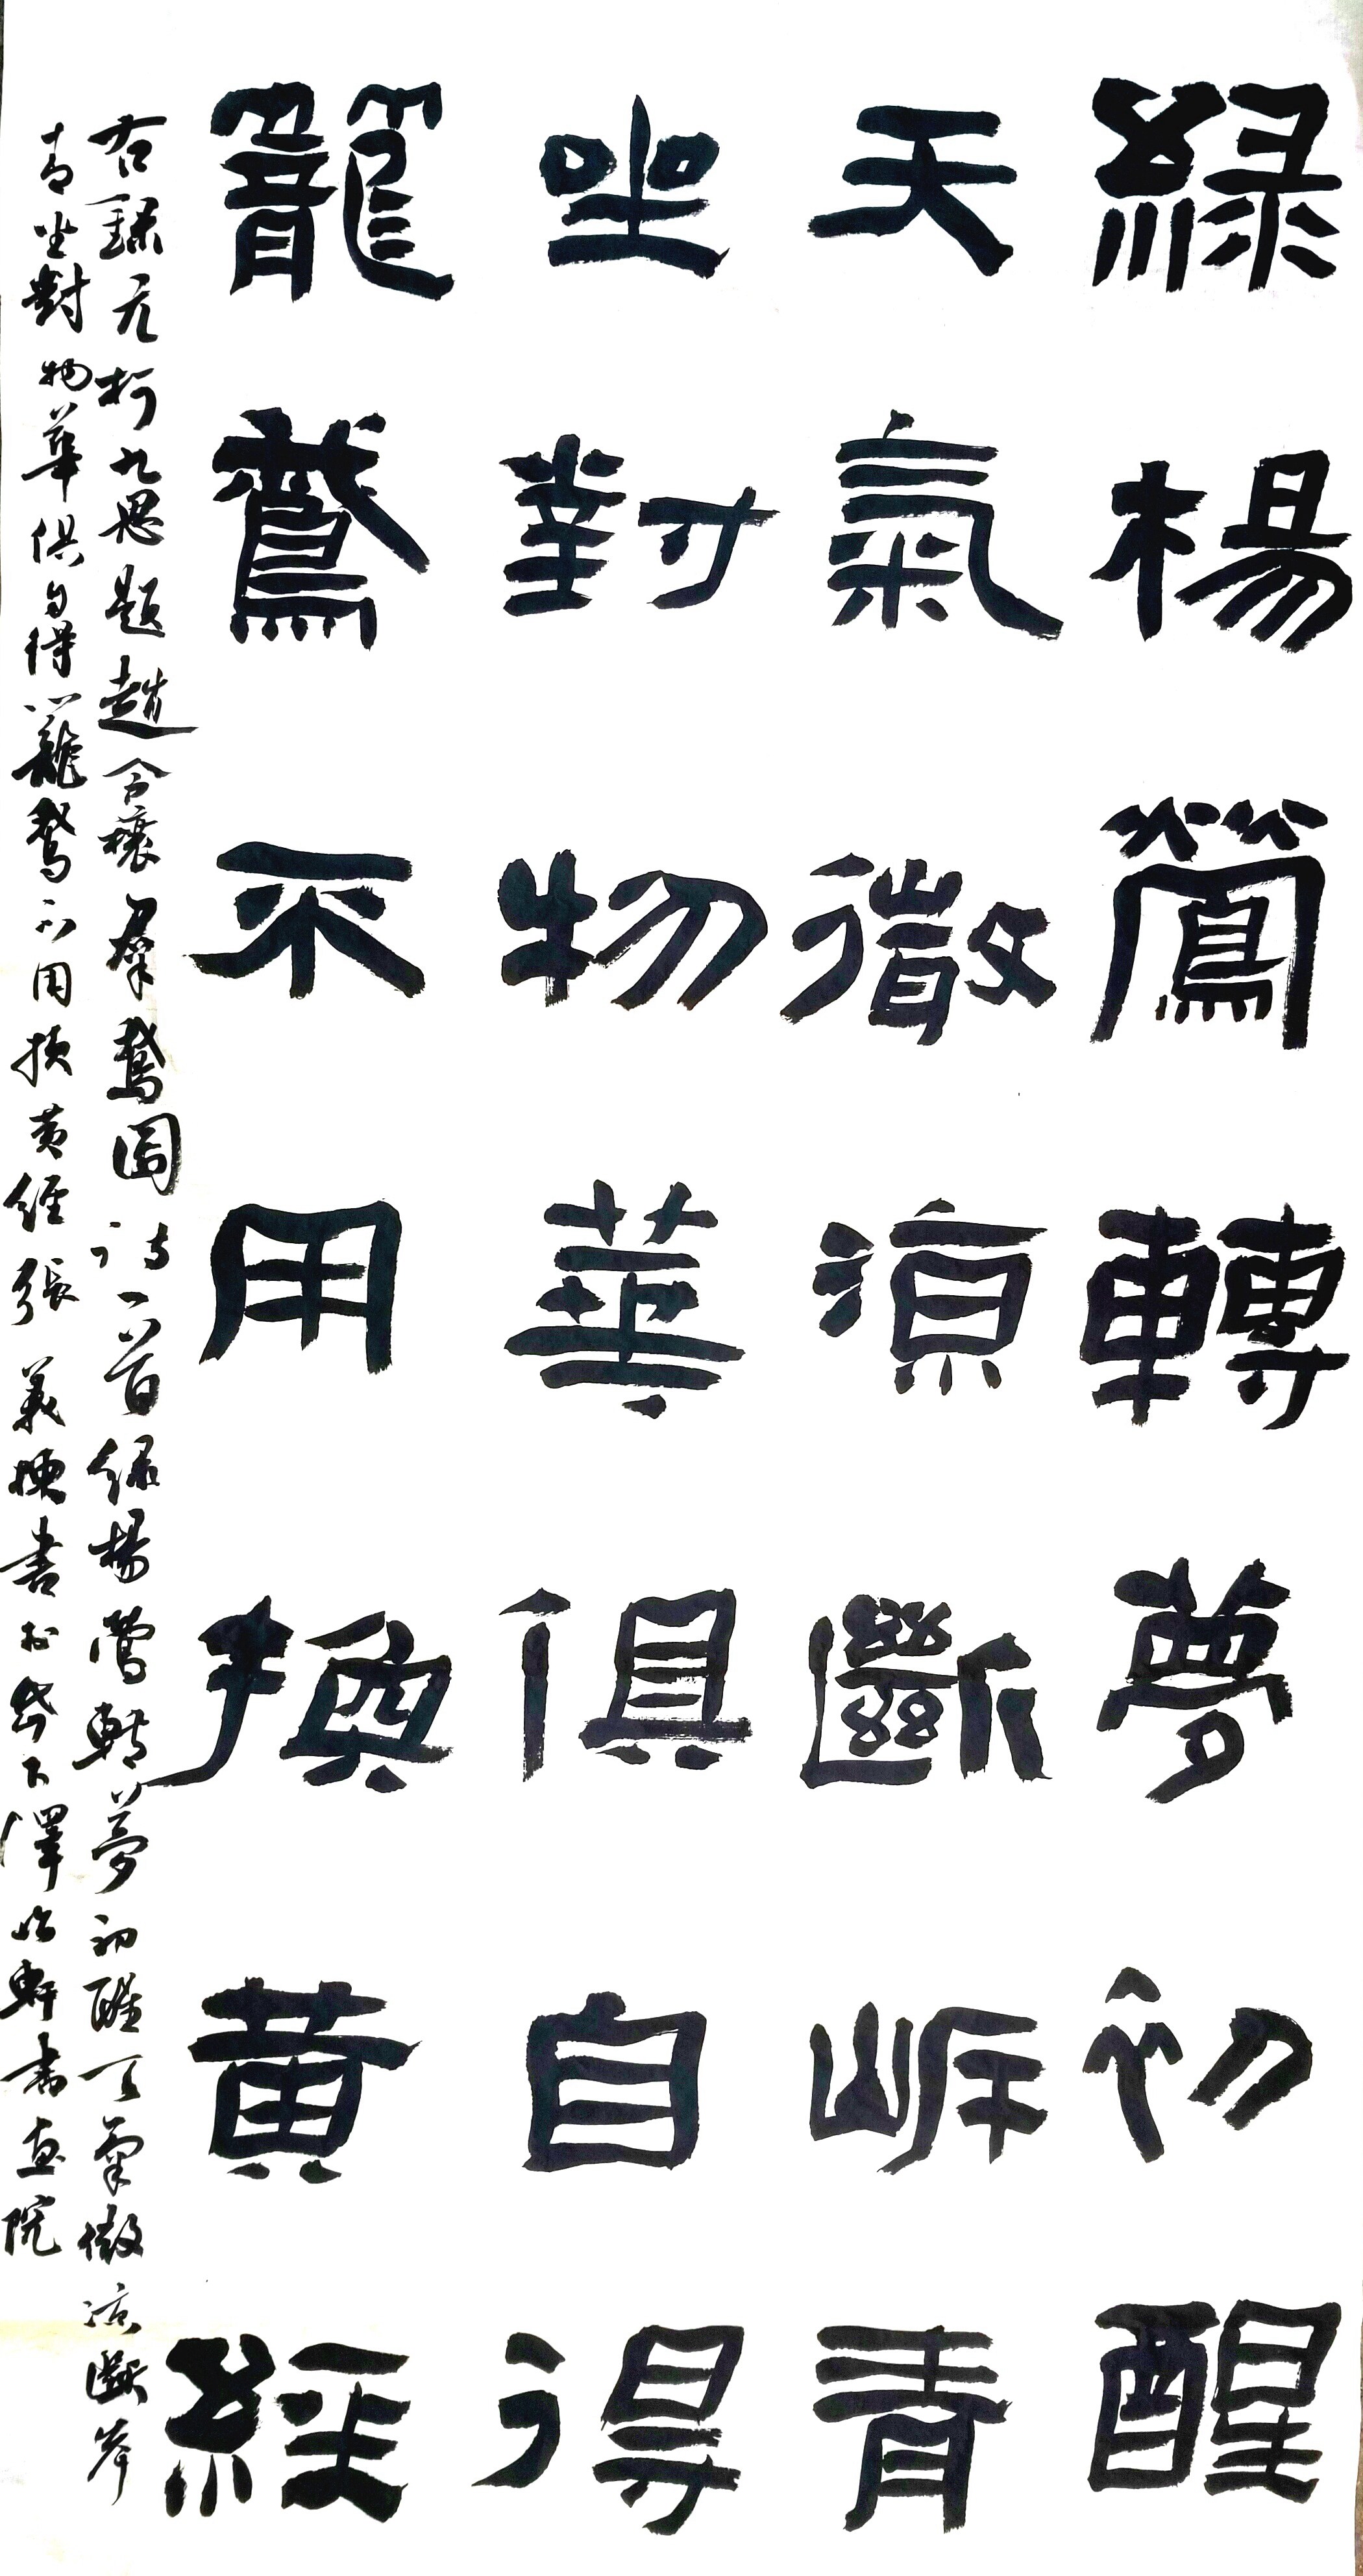 綠楊鶯轉夢初醒
天氣微涼斷岸青
坐對物華俱自得
籠鵞不用換黃經
右錄元柯九思題趙令穰羣鵞圖詩一首綠楊鶯轉夢初醒天氣微涼斷岸
青坐對物華俱自得籠鵞不用換黃經張義換書於岱下澤怡軒書画院